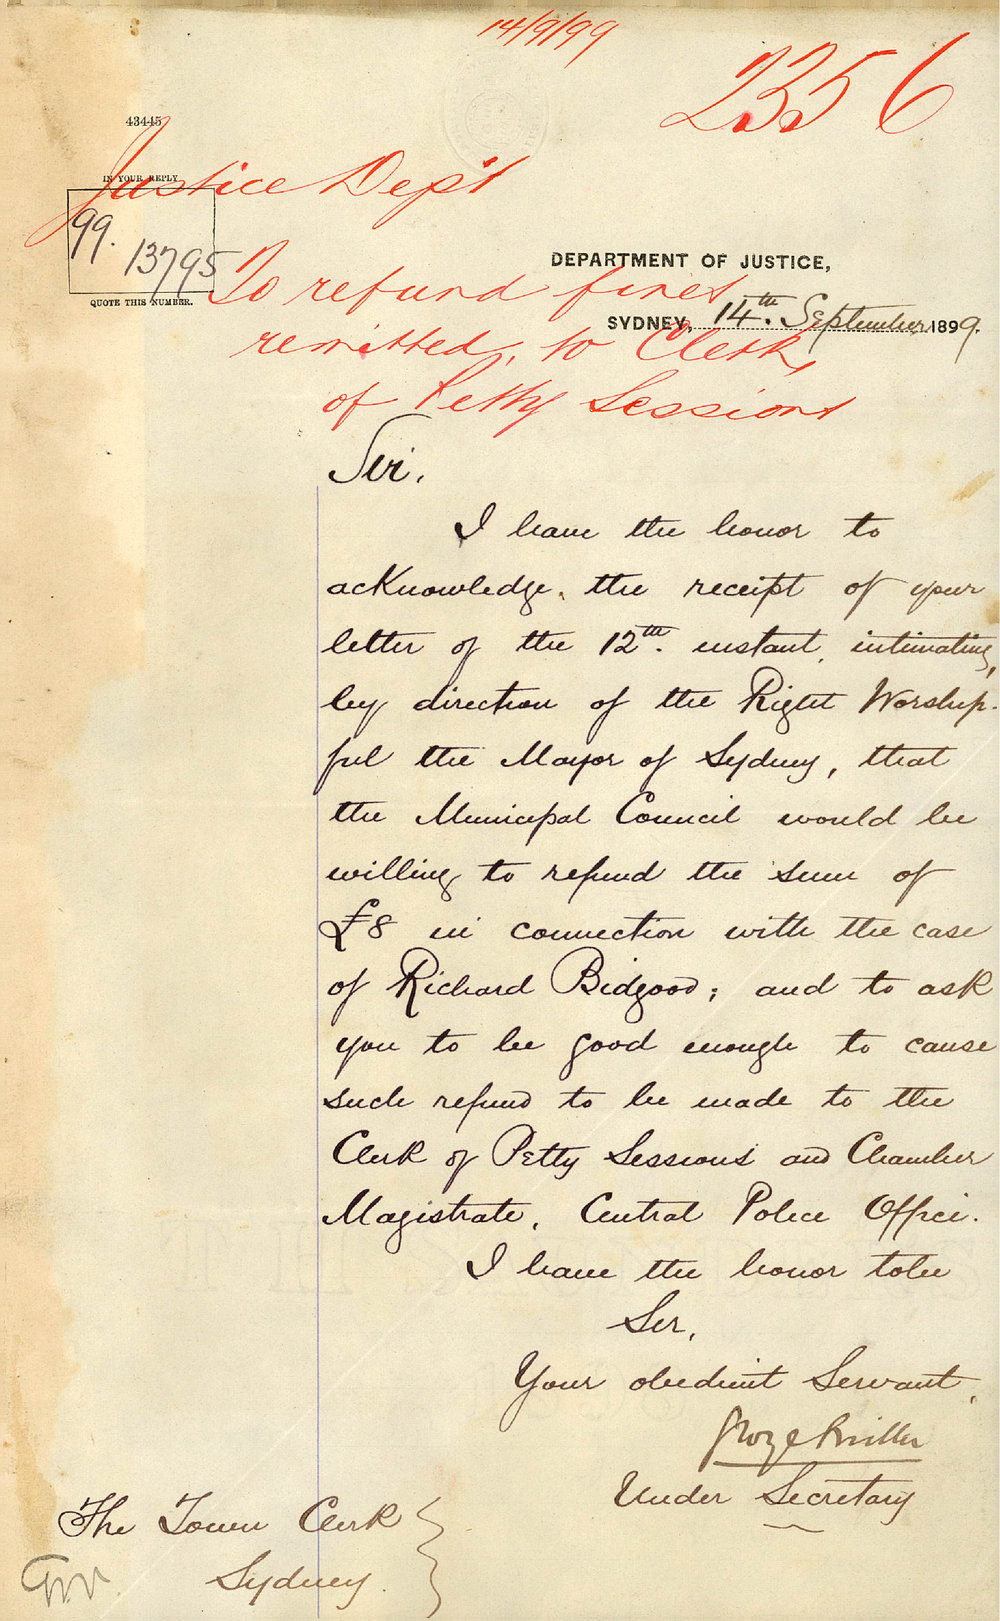 14/9/99
2356
43445
Justice Dep't
IN YOUR REPLY
99.
13795
QUOTE THIS NUMBER.
DEPARTMENT OF JUSTICE,
SYDNEY, 14th. September 1899.
To refund fines
remitted, to Clerk,
of Petty Sessions
Sir,
I have the honor to
acknowledge, the receipt of your
letter of the 12th. instant, intimating,
by direction of the Right Worship-
ful the Mayor of Sydney, that
the Municipal Council would be
willing to refund the sum of
£8 in connection with the case
of Richard Bidgood; and to ask
you to be good enough to cause
such refund to be made to the
Clerk of Petty Sessions and Chamber
Magistrate, Central Police Office.
I have the honor to be
Sir,
Your obedient Servant,
Under Secretary
The Town Clerk
Sydney.